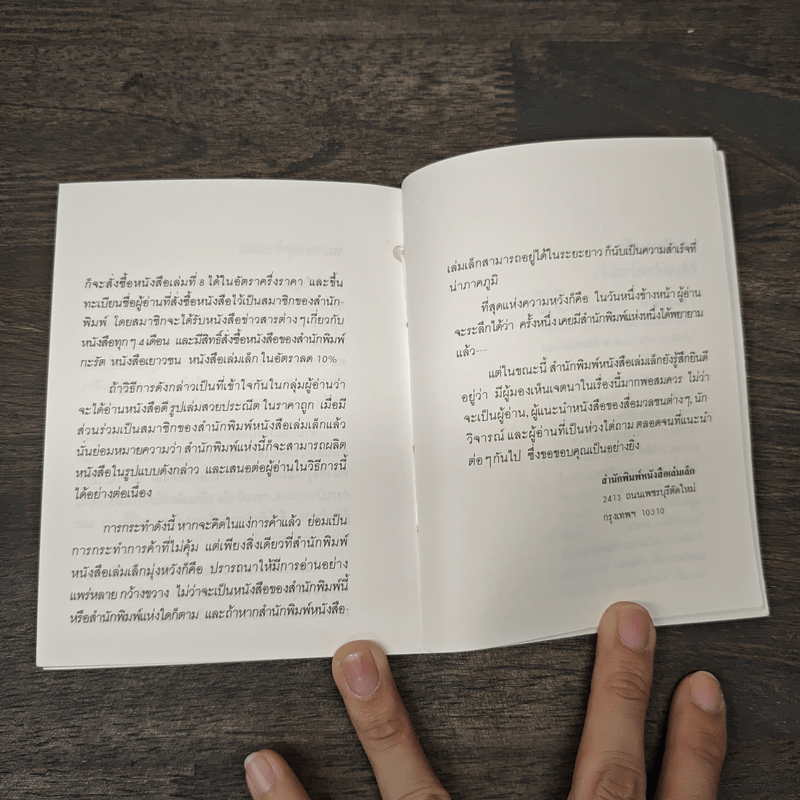 ก็จะสั่งซื้อหนังสือเล่มที่ 8 ได้ในอัตราครึ่งราคา และขึ้น
ทะเบียนชื่อผู้อ่านที่สั่งซื้อหนังสือไว้เป็นสมาชิกของสำนัก-
พิมพ์ โดยสมาชิกจะได้รับหนังสือข่าวสารต่างๆเกี่ยวกับ
หนังสือทุกๆ 4 เดือน และมีสิทธิ์สั่งซื้อหนังสือของสำนักพิมพ์
กะรัต หนังสือเยาวชน หนังสือเล่มเล็ก ในอัตราลด 10%
ถ้าวิธีการดังกล่าวเป็นที่เข้าใจกันในกลุ่มผู้อ่านว่า
จะได้อ่านหนังสือดี รูปเล่มสวยประณีต ในราคาถูก เมื่อมี
ส่วนร่วมเป็นสมาชิกของสำนักพิมพ์หนังสือเล่มเล็กแล้ว
นั่นย่อมหมายความว่า สำนักพิมพ์แห่งนี้ก็จะสามารถผลิต
หนังสือในรูปแบบดังกล่าว และเสนอต่อผู้อ่านในวิธีการนี้
ได้อย่างต่อเนื่อง
การกระทำดังนี้ หากจะคิดในแง่การค้าแล้ว ย่อมเป็น
การกระทำการค้าที่ไม่คุ้ม แต่เพียงสิ่งเดียวที่สำนักพิมพ์
หนังสือเล่มเล็กมุ่งหวังก็คือ ปรารถนาให้มีการอ่านอย่าง
แพร่หลาย กว้างขวาง ไม่ว่าจะเป็นหนังสือของสำนักพิมพ์นี้
หรือสำนักพิมพ์แห่งใดก็ตาม และถ้าหากสำนักพิมพ์หนังสือ-
เล่มเล็กสามารถอยู่ได้ในระยะยาว ก็นับเป็นความสำเร็จที่
น่าภาคภูมิ
ที่สุดแห่งความหวังก็คือ ในวันหนึ่งข้างหน้า ผู้อ่าน
จะระลึกได้ว่า ครั้งหนึ่ง เคยมีสำนักพิมพ์แห่งหนึ่งได้พยายาม
แล้ว---
แต่ในขณะนี้ สำนักพิมพ์หนังสือเล่มเล็กยังรู้สึกยินดี
อยู่ว่า มีผู้มองเห็นเจตนาในเรื่องนี้มากพอสมควร ไม่ว่า
จะเป็นผู้อ่าน, ผู้แนะนำหนังสือของสื่อมวลชนต่างๆ, นัก
วิจารณ์ และผู้อ่านที่เป็นห่วงไต่ถาม ตลอดจนที่แนะนำ
ต่อๆกันไป ซึ่งขอขอบคุณเป็นอย่างยิ่ง
สำนักพิมพ์หนังสือเล่มเล็ก
2413 ถนนเพชรบุรีตัดใหม่
กรุงเทพฯ 10310